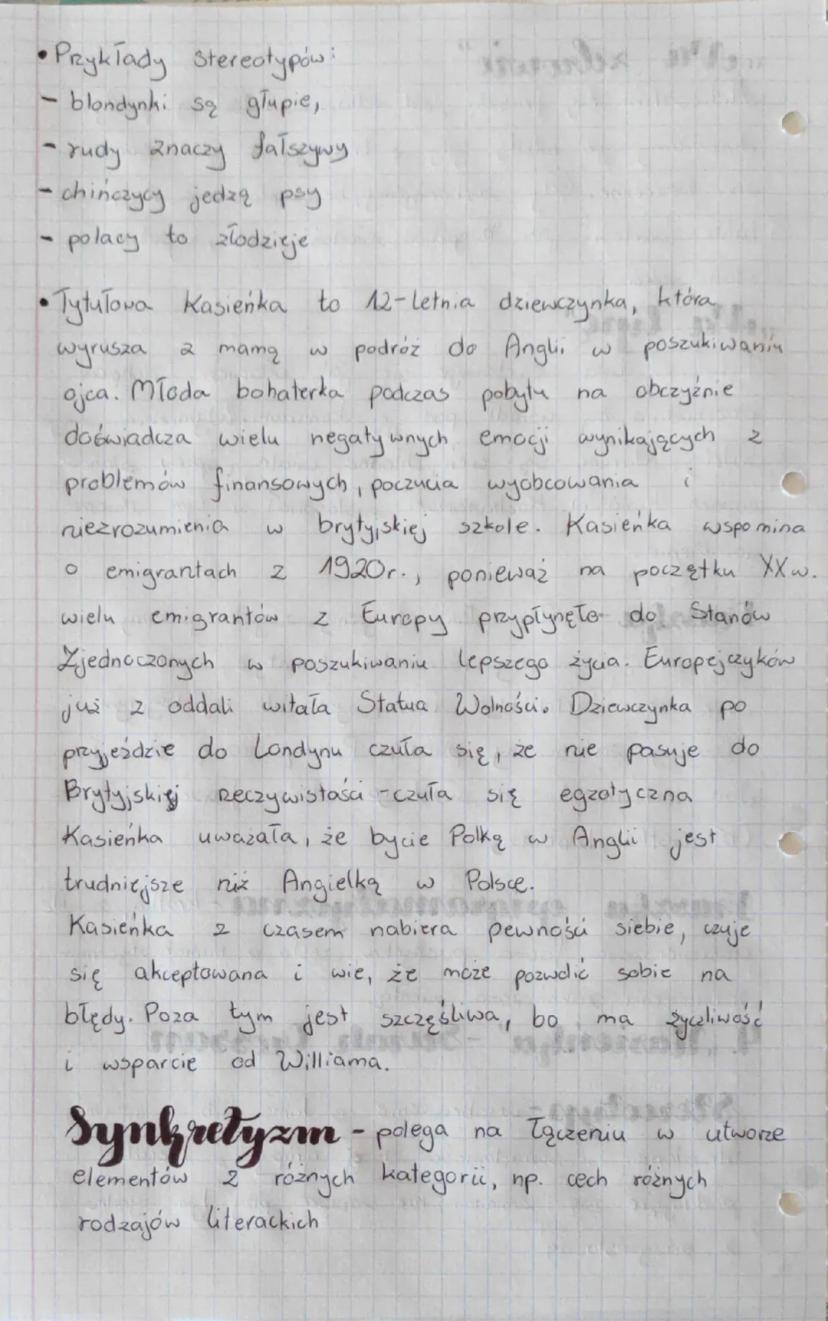 • Przykłady stereotypów:
- blondynki są głupie,
- rudy znaczy fałszywy
- chińczycy jedzą psy
- polacy to złodzieje
• Tytułowa Kasieńka to 12-letnia dziewczynka, która
wyrusza z mamą w podróż do Anglii w poszukiwaniu
ojca. Młoda bohaterka podczas pobytu na obczyźnie
doświadcza wielu negatywnych emocji wynikających z
problemów finansowych, poczucia wyobcowania i
niezrozumienia w brytyjskiej szkole. Kasieńka wspomina
o emigrantach z 1920r., ponieważ na początku XXw.
wielu emigrantów z Europy przypłynęło do Stanów
Zjednoczonych w poszukiwaniu lepszego życia. Europejczyków
już z oddali witała Statua Wolności. Dziewczynka po
przyjeździe do Londynu czuła się, że nie pasuje do
Brytyjskiej rzeczywistości - czuła się egzotyczna
Kasieńka uważała, że bycie Polką w Anglii jest
trudniejsze niż Angielką w Polsce.
Kasieńka z czasem nabiera pewności siebie, czuje
się akceptowana i wie, że może pozwolić sobie na
błędy. Poza tym jest szczęśliwa, bo ma życzliwość
i wsparcie od Williama.
Synkretyzm - polega na łączeniu w utworze
elementów z różnych kategorii, np. cech różnych
rodzajów literackich